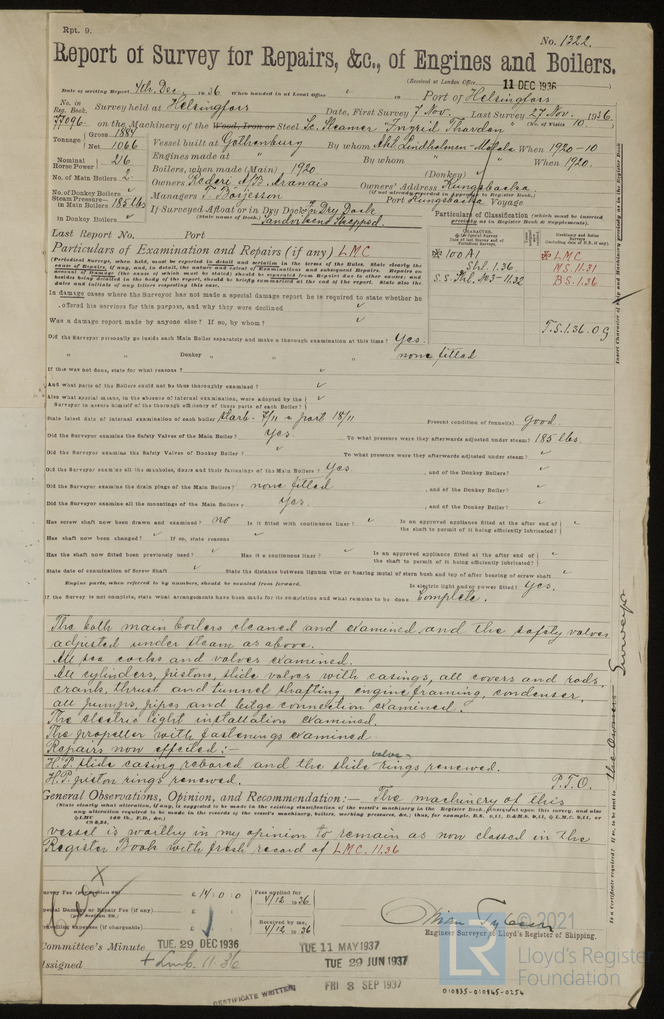 Rpt. 9.
No. 1322.
Report of Survey for Repairs, &c., of Engines and Boilers.
(Received at London Office 11 DEC 1936)
Date of writing Report 4th. Dec. 1936 When handed in at Local Office " Port of Helsingfors
No. in Reg. Book 77096. Survey held at Helsingfors Date, First Survey 7 Nov. Last Survey 27 Nov. 1936.
on the Machinery of the Wood, Iron or Steel Sc. Steamer "Ingrid Thordén" (No. of Visits 10)
Tonnage Gross 1884 Net 1066
Vessel built at Gothenburg By whom Akt. Lindholmen-Motala When 1920-10
Nominal Horse Power 216
Engines made at " By whom " When 1920.
No. of Main Boilers 2
Boilers, when made (Main) 1920 (Donkey) "
No. of Donkey Boilers "
Owners Rederi A/B. Aranäis Owners' Address Kungsbacka
(if not already recorded in Appendix to Register Book.)
Steam Pressure in Main Boilers 185 lbs.
Managers T. Borjesson Port Kungsbacka Voyage
in Donkey Boilers "
If Surveyed Afloat or in Dry Dock In Dry Dock
(State name of Dock.) Sandvikens Skeppsd.
Particulars of Classification (which must be inserted precisely as in Register Book & Supplements).
Last Report No. Port
Particulars of Examination and Repairs (if any) LMC
(Periodical Surveys, when held, must be reported in detail and seriatim in the terms of the Rules. State clearly the cause of Repairs, if any, and, in detail, the nature and extent of Examinations and subsequent Repairs. Repairs on account of Damage (the cause of which must be stated) should be separated from Repairs due to other causes; and besides being detailed in the body of the report, should be briefly summarized at the end of the report. State also the dates and initials of any letters respecting this case.
✠ 100 A1
Shl. 1.36
S.S. Shl. No3-11.32
✠ LMC
M.S. 11.31
B.S. 1.36
T.S. 1.36. OG
In damage cases where the Surveyor has not made a special damage report he is required to state whether he
offered his services for this purpose, and why they were declined "
Was a damage report made by anyone else? If so, by whom? "
Did the Surveyor personally go inside each Main Boiler separately and make a thorough examination at this time? Yes.
" " Donkey " " " " " none fitted
If this was not done, state for what reasons? "
And what parts of the Boilers could not be thus thoroughly examined? "
Also what special means, in the absence of internal examination, were adopted by the Surveyor to assure himself of the thorough efficiency of those parts of each Boiler? "
State latest date of internal examination of each boiler Starb. 7/11 & port 18/11 Present condition of funnel(s) Good.
Did the Surveyor examine the Safety Valves of the Main Boiler? Yes. To what pressure were they afterwards adjusted under steam? 185 lbs.
Did the Surveyor examine the Safety Valves of Donkey Boiler? " To what pressure were they afterwards adjusted under steam? "
Did the Surveyor examine all the manholes, doors and their fastenings of the Main Boilers? Yes , and of the Donkey Boilers? "
Did the Surveyor examine the drain plugs of the Main Boilers? none fitted , and of the Donkey Boiler? "
Did the Surveyor examine all the mountings of the Main Boilers? Yes. , and of the Donkey Boiler? "
Has screw shaft now been drawn and examined? no Is it fitted with continuous liner? " Is an approved appliance fitted at the after end of the shaft to permit of it being efficiently lubricated? "
Has shaft now been changed? " If so, state reasons "
Has the shaft now fitted been previously used? " Has it a continuous liner? " Is an approved appliance fitted at the after end of the shaft to permit of it being efficiently lubricated? "
State date of examination of Screw Shaft " State the distance between lignum vitæ or bearing metal of stern bush and top of after bearing of screw shaft "
Engine parts, when referred to by numbers, should be counted from forward. Is electric light and/or power fitted? Yes.
If the Survey is not complete, state what arrangements have been made for its completion and what remains to be done Complete.
The both main boilers cleaned and examined and the safety valves
adjusted under steam as above.
All sea cocks and valves examined.
All cylinders, pistons, slide valves with casings, all covers and rods,
crank, thrust and tunnel shafting engine framing, condenser,
all pumps, pipes and bilge connection examined.
The electric light installation examined.
The propeller with fastenings examined
Repairs now effected:-
H.P. slide casing rebored and the slide valve rings renewed.
H.P. piston rings renewed.
P.T.O.
General Observations, Opinion, and Recommendation:— The machinery of this
vessel is worthy in my opinion to remain as now classed in the
Register Book with fresh record of LMC. 11.36
Survey Fee £ 14 : 0 : 0 Fees applied for 4/12 1936
Special Damage or Repair Fee (if any) £
Travelling Expenses (if chargeable) £ Received by me, 4/12 1936
Engineer Surveyor to Lloyd's Register of Shipping.
Committee's Minute TUE. 29 DEC 1936 TUE 11 MAY 1937
Assigned + LMC. 11.36 TUE 29 JUN 1937
FRI 3 SEP 1937
CERTIFICATE WRITTEN
© 2021
LR
Lloyd's Register
Foundation
010835-010845-0254